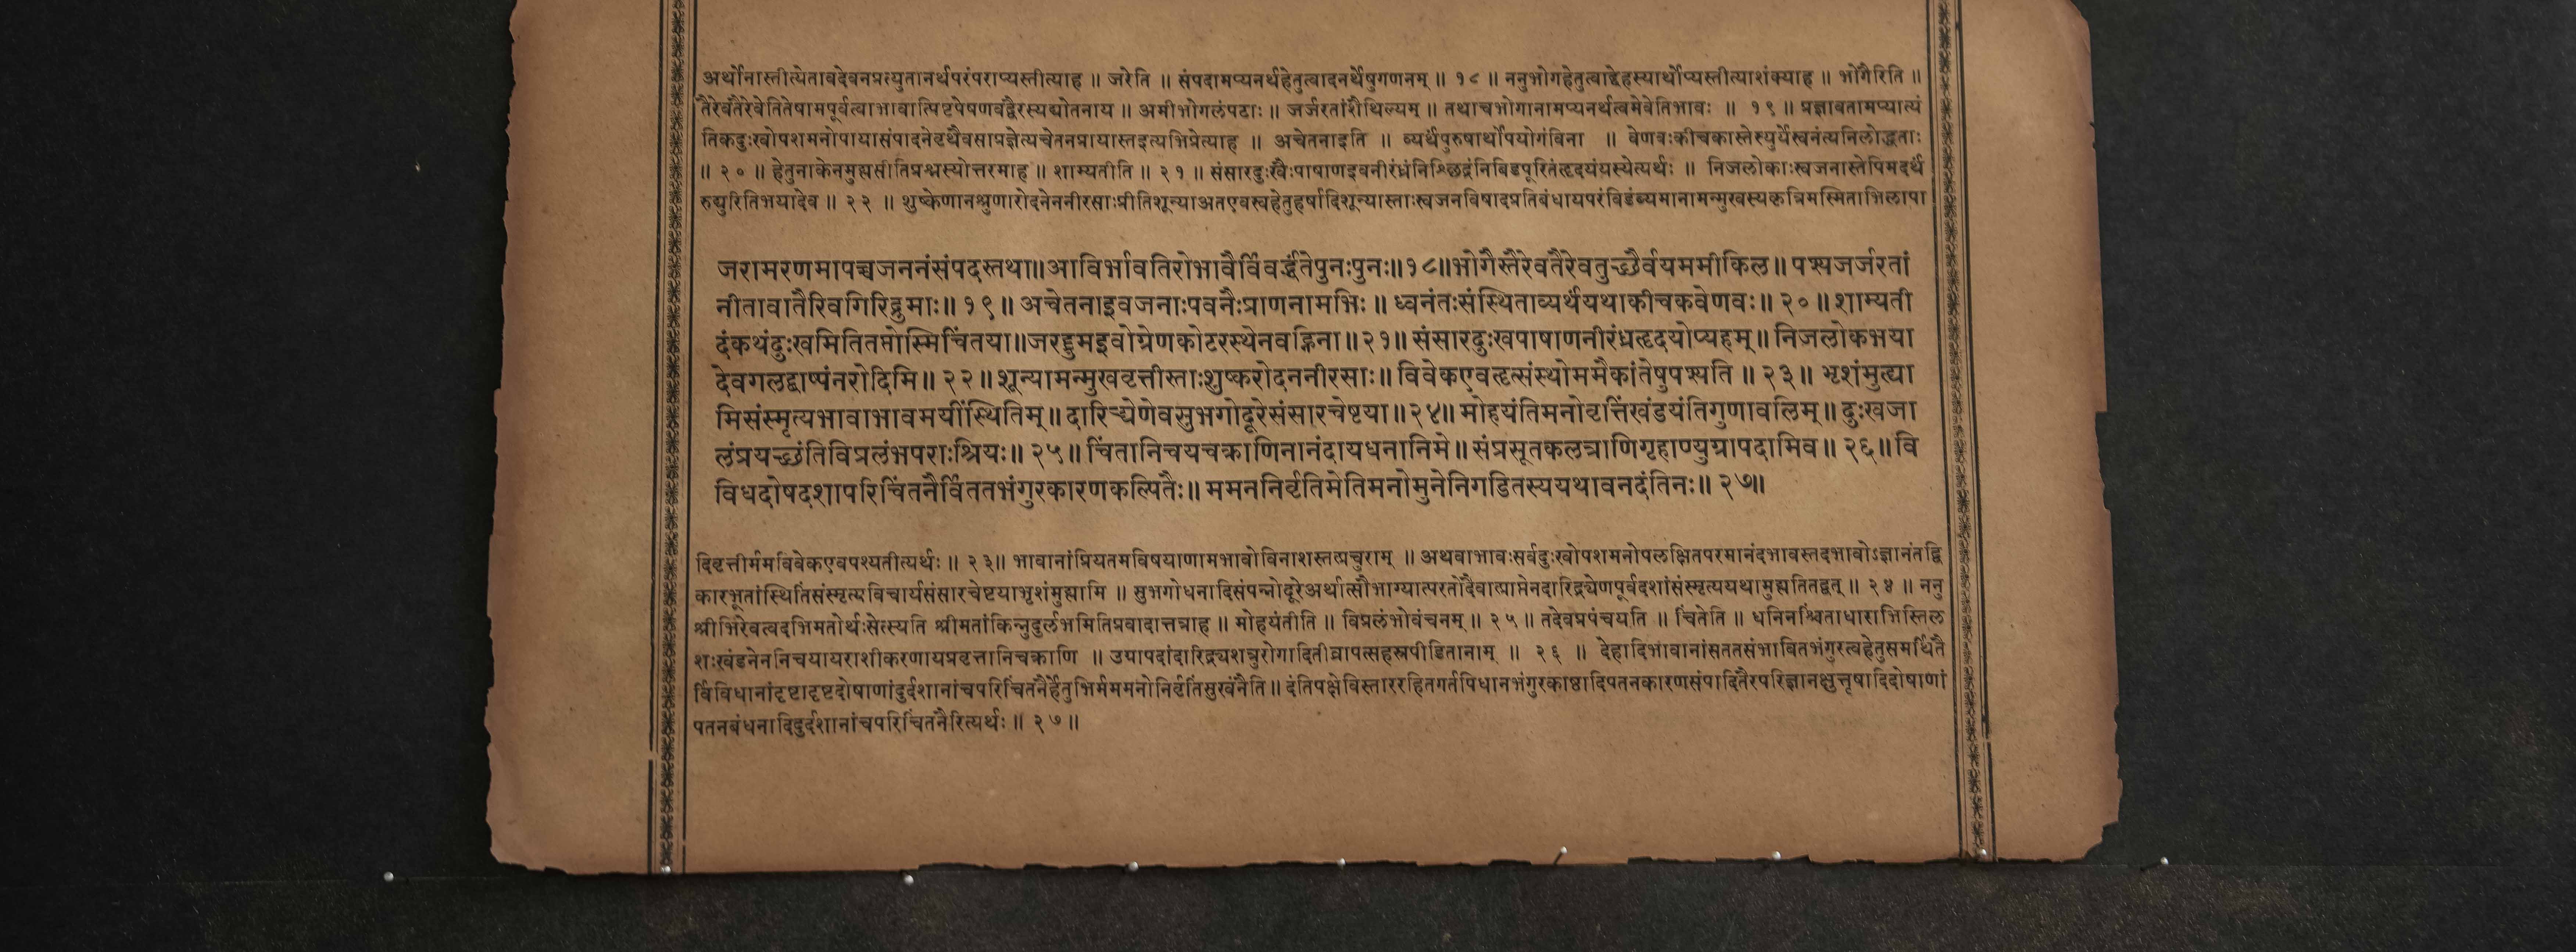 अर्थोनास्तीत्येतावदेवनप्रत्युतानर्थपरंपराप्यस्तीत्याह ॥ जरेति ॥ संपदामप्यनर्थहेतुत्वादनर्थेषुगणनम् ॥ १८ ॥ ननुभोगहेतुत्वाद्देहस्यार्थोप्यस्तीत्याशंक्याह ॥ भोगैरिति ॥
तैरेवतैरेवेतितेषामपूर्वत्वाभावात्पिष्टपेषणवद्वैरस्यद्योतनाय ॥ अमीभोगलंपटाः ॥ जर्जरतांशैथिल्यम् ॥ तथाचभोगानामप्यनर्थत्वमेवेतिभावः ॥ १९ ॥ प्रज्ञावतामप्यात्यं
तिकदुःखोपशमनोपायासंपादनेवृथैवसाप्रज्ञेत्यचेतनप्रायास्तइत्यभिप्रेत्याह ॥ अचेतनाइति ॥ व्यर्थंपुरुषार्थोपयोगंविना ॥ वेणवःकीचकास्तेस्युर्येस्वनंत्यनिलोद्धताः
॥ २० ॥ हेतुनाकेनमुह्यसीतिप्रश्नस्योत्तरमाह ॥ शाम्यतीति ॥ २१ ॥ संसारदुःखैःपाषाणइवनीरंध्रंनिश्छिद्रंनिबिडपूरितंहृदयंयस्येत्यर्थः ॥ निजलोकाःस्वजनास्तेपिमदर्थं
रुद्युरितिभयादेव ॥ २२ ॥ शुष्केणानश्रुणारोदनेननीरसाःप्रीतिशून्याअतएवस्वहेतुहर्षादिशून्यास्ताःस्वजनविषादप्रतिबंधायपरंविडंब्यमानामन्मुखस्यकृत्रिमस्मिताभिलापा
जरामरणमापच्चजननंसंपदस्तथा॥आविर्भावतिरोभावैर्विवर्द्धंतेपुनःपुनः॥१८॥भोगैस्तैरेवतैरेवतुच्छैर्वयममीकिल॥ पश्यजर्जरतां
नीतावातैरिवगिरिद्रुमाः॥ १९॥ अचेतनाइवजनाःपवनैःप्राणनामभिः॥ ध्वनंतःसंस्थिताव्यर्थंयथाकीचकवेणवः॥ २०॥ शाम्यती
दंकथंदुःखमितितप्तोस्मिचिंतया॥जरद्द्रुमइवोग्रेणकोटरस्थेनवह्निना॥२१॥ संसारदुःखपाषाणनीरंध्रहृदयोप्यहम्॥ निजलोकभया
देवगलद्बाष्पंनरोदिमि॥ २२॥ शून्यामन्मुखवृत्तीस्ताःशुष्करोदननीरसाः॥ विवेकएवहृत्संस्थोममैकांतेषुपश्यति ॥ २३॥ भृशंमुह्या
मिसंस्मृत्यभावाभावमयींस्थितिम्॥ दारिद्र्येणेवसुभगोदूरेसंसारचेष्टया॥२४॥ मोहयंतिमनोवृत्तिंखंडयंतिगुणावलिम्॥ दुःखजा
लंप्रयच्छंतिविप्रलंभपराःश्रियः॥ २५॥ चिंतानिचयचक्राणिनानंदायधनानिमे॥ संप्रसूतकलत्राणिगृहाण्युग्रापदामिव॥ २६॥ वि
विधदोषदशापरिचिंतनैर्विततभंगुरकारणकल्पितैः॥ ममननिर्वृतिमेतिमनोमुनेनिगडितस्ययथावनदंतिनः॥ २७॥
दिवृत्तीर्ममविवेकएवपश्यतीत्यर्थः ॥ २३॥ भावानांप्रियतमविषयाणामभावोविनाशस्तत्प्रचुराम् ॥ अथवाभावःसर्वदुःखोपशमनोपलक्षितपरमानंदभावस्तदभावोऽज्ञानंतद्वि
कारभूतांस्थितिंसंस्मृत्यविचार्यसंसारचेष्टयाभृशंमुह्यामि ॥ सुभगोधनादिसंपन्नोदूरेअर्थात्सौभाग्यात्परतोदैवात्प्राप्तेनदारिद्र्येणपूर्वदशांसंस्मृत्ययथामुह्यतितद्वत् ॥ २४ ॥ ननु
श्रीभिरेवत्वदभिमतोर्थःसेत्स्यति श्रीमतांकिन्नुदुर्लभमितिप्रवादात्तत्राह ॥ मोहयंतीति ॥ विप्रलंभोवंचनम् ॥ २५ ॥ तदेवप्रपंचयति ॥ चिंतेति ॥ धनिनश्चिंताधाराभिस्तिल
शःखंडनेननिचयायराशीकरणायप्रवृत्तानिचक्राणि ॥ उग्रापदांदारिद्र्यशत्रुरोगादितीव्रापत्सहस्रपीडितानाम् ॥ २६ ॥ देहादिभावानांसततसंभावितभंगुरत्वहेतुसमर्थितै
र्विविधानांदृष्टादृष्टदोषाणांदुर्दशानांचपरिचिंतनैर्हेतुभिर्मममनोनिर्वृतिंसुखंनैति॥ दंतिपक्षेविस्ताररहितगर्तपिधानभंगुरकाष्ठादिपतनकारणसंपादितैरपरिज्ञानक्षुत्तृषादिदोषाणां
पतनबंधनादिदुर्दशानांचपरिचिंतनैरित्यर्थः ॥ २७ ॥